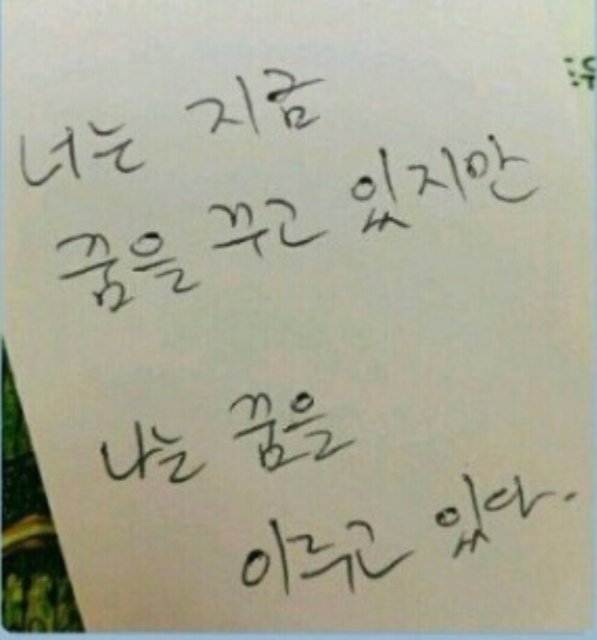 너는 지금
꿈을 꾸고 있지만
나는 꿈을
이루고 있다.